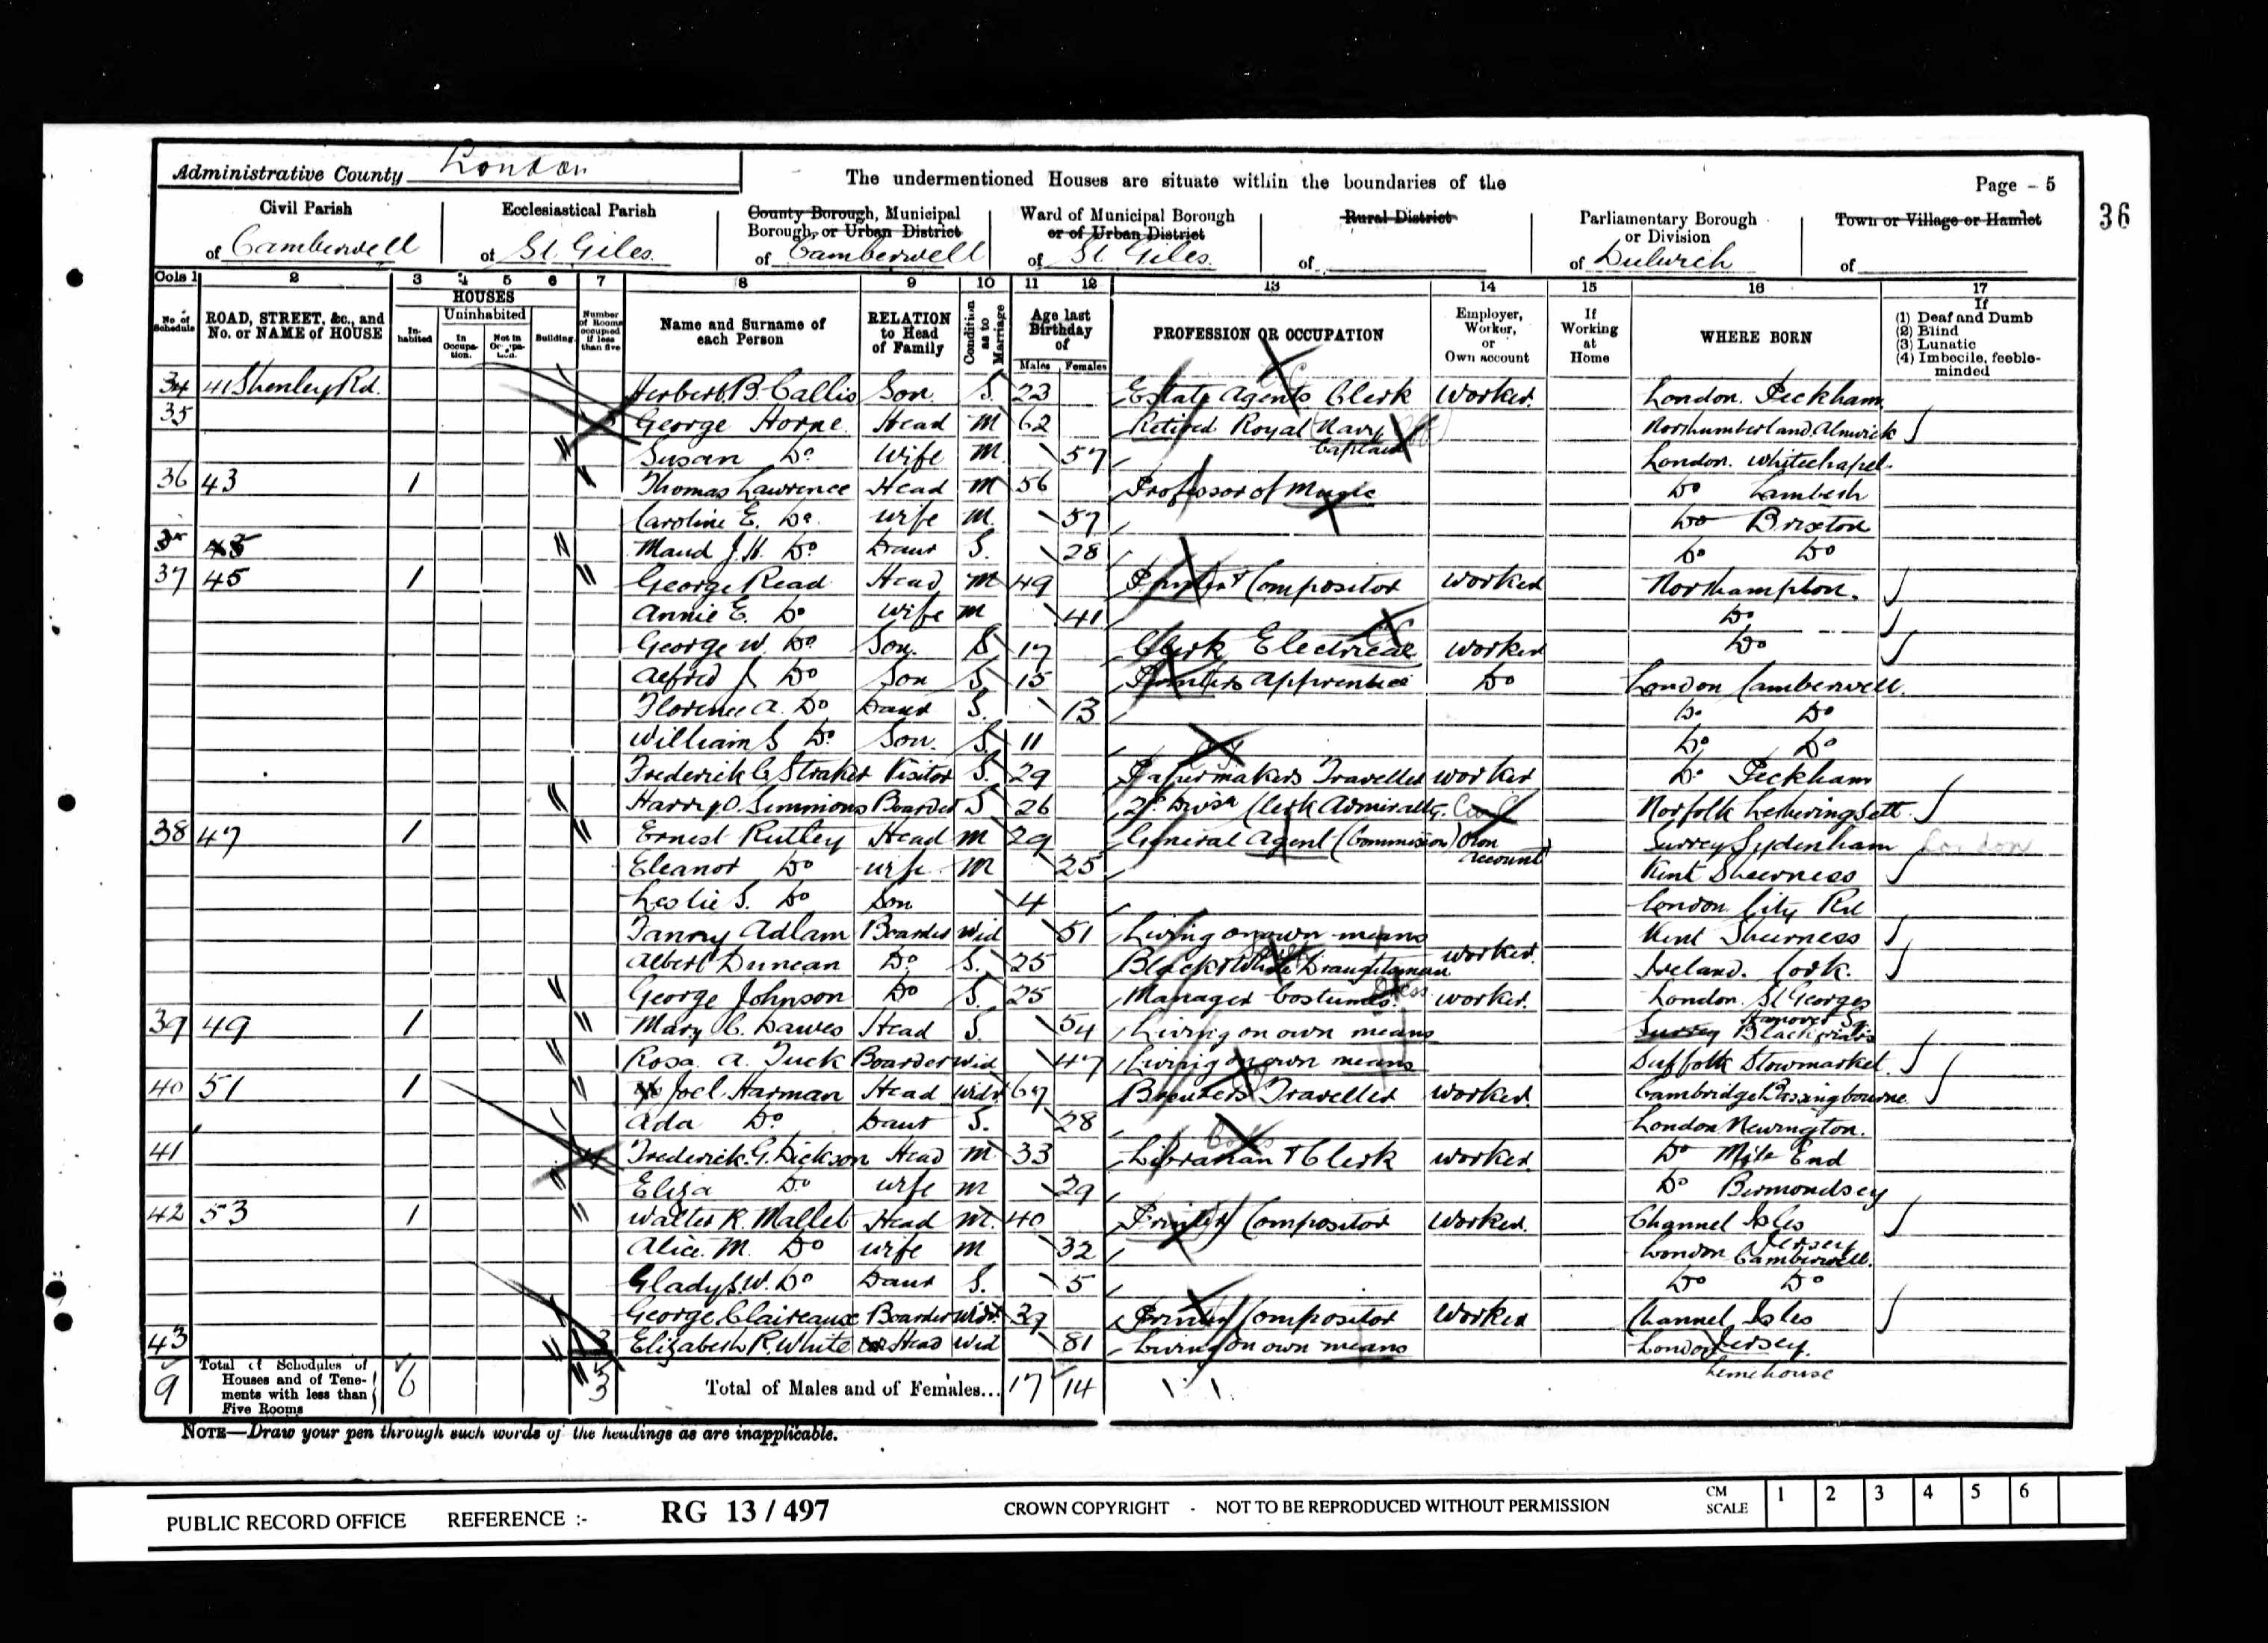 Administrative County London
The undermentioned Houses are situate within the boundaries of the
Page - 5
36
Civil Parish of Camberwell
Ecclesiastical Parish of St Giles
County Borough, Municipal Borough, or Urban District of Camberwell
Ward of Municipal Borough or of Urban District of St Giles
Rural District of
Parliamentary Borough or Division of Dulwich
Town or Village or Hamlet of
Cols 1 2 3 4 5 6 7 8 9 10 11 12 13 14 15 16 17
No. of Schedule
ROAD, STREET, &c., and No. or NAME of HOUSE
HOUSES
Inhabited
Uninhabited
In Occupation.
Not in Occupation.
Building
Number of Rooms occupied if less than five
Name and Surname of each Person
RELATION to Head of Family
Condition as to Marriage
Age last Birthday of
Males Females
PROFESSION OR OCCUPATION
Employer, Worker, or Own account
If Working at Home
WHERE BORN
If
(1) Deaf and Dumb
(2) Blind
(3) Lunatic
(4) Imbecile, feeble-minded
34 41 Shenley Rd. Herbert B. Callis Son. S. 23 Estate Agents Clerk Worker. London. Peckham
35 George Horne Head M 62 Retired Royal Navy Captain Northumberland. Alnwick
Susan Do Wife M 57 London. Whitechapel.
36 43 1 Thomas Lawrence Head M 56 Professor of Music Do Lambeth
Caroline E. Do. Wife M. 57 Do Brixton
Maud J. H. Do Daur S. 28 Do Do
37 45 1 George Read Head M 49 Printer Compositor Worker Northampton.
Annie E. Do Wife M 41 Do
George W. Do Son. S 17 Clerk Electrical Worker Do
Alfred J. Do Son S 15 Printers Apprentice Do London Camberwell.
Florence A. Do Daur S. 13 Do Do
William S Do. Son. S. 11 Do Do
Frederick C. Straker Visitor S. 29 Papermakers Traveller Worker Do Peckham
Harry O. Simmons Boarder S 26 2nd Divisn Clerk Admiralty. Norfolk Letheringsett.
38 47 1 Ernest Rutley Head M 29 General Agent (Commission) Own account Surrey Sydenham London
Eleanor Do Wife M 25 Kent Sheerness
Leslie S. Do Son 4 London City Rd
Fanny Adlam Boarder Wid 51 Living on own means Kent Sheerness
Albert Duncan Do. S. 25 Black & White Draughtsman Worker. Ireland. Cork.
George Johnson Do S. 25 Manager Costumes. Dress Worker. London. St Georges Hanover Sq.
39 49 1 Mary C. Dawes Head S. 54 Living on own means Surrey Blackfriars
Rosa. A. Tuck Boarder Wid 47 Living on own means Suffolk Stowmarket.
40 51 1 Joel Harman Head Widr 67 Brewers Traveller Worker. Cambridge Bassingbourne.
Ada Do. Daur S. 28 London Newington.
41 Frederick. G. Dickson Head M 33 Librarian & Clerk Worker. Do Mile End
Eliza Do. Wife M 29 Do Bermondsey
42 53 1 Walter R. Mallet Head M. 40 Printer Compositor Worker. Channel Isles Jersey
Alice. M. Do Wife M 32 London Camberwell.
Gladys. W. Do Daur S. 5 Do Do
George Claireaux Boarder Widr. 39 Printer Compositor Worker Channel Isles Jersey.
43 Elizabeth R. White Head Wid 81 Living on own means London Limehouse
9 Total of Schedules of Houses and of Tenements with less than Five Rooms 6 3 Total of Males and of Females... 17 14
NOTE—Draw your pen through such words of the headings as are inapplicable.
PUBLIC RECORD OFFICE REFERENCE :- RG 13 / 497 CROWN COPYRIGHT - NOT TO BE REPRODUCED WITHOUT PERMISSION
CM SCALE 1 2 3 4 5 6